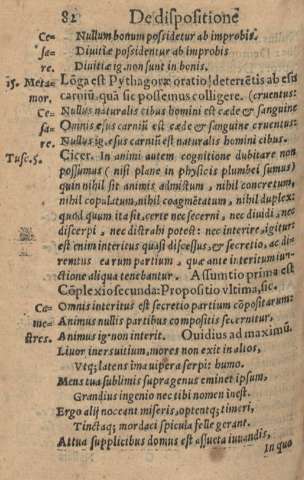 82 De dispositione
Ce= Nullum bonum possidetur ab improbis.
sa= Divitiæ possidentur ab improbis
re. Divitiæ ig. non sunt in bonis.
15. Meta= Lõga est Pythagoræ oratio! deterrētis ab esu
mor. carniū, quā sic possemus colligere. (cruentus:
Ce= Nullus naturalis cibus homini est cæde & sanguine
sa= Omnis esus carniū est cæde & sanguine cruentus:
re. Nullus ig. esus carniū est naturalis homini cibus.
Tusc. 5. Cicer. In animi autem cognitione dubitare non
possumus (nisi plane in physicis plumbei sumus)
quin nihil sit animis admistum, nihil concretum,
nihil copulatum, nihil coagmētatum, nihil duplex:
quod quum ita sit, certe nec secerni, nec dividi, nec
discerpi, nec distrahi potest: nec interire, igitur:
est enim interitus quasi discessus, & secretio, ac di=
remtus earum partium, quæ ante interitum iun=
ctione aliqua tenebantur. Assumtio prima est
Cõplexio secunda: Propositio vltima, sic.
Ca= Omnis interitus est secretio partium cõpositarum:
me= Animus nullis partibus compositis secernitur,
stres. Animus ig. non interit. Ouidius ad maximū.
Liuor iners uitium, mores non exit in altos,
Vtq; latens ima uipera serpit humo.
Mens tua sublimis supra genus eminet ipsum,
Grandius ingenio nec tibi nomen inest.
Ergo alij noceant miseris, optentq; timeri,
Tinctaq; mordaci spicula felle gerant.
Attua supplicibus domus est assueta iuuandis,
In quo